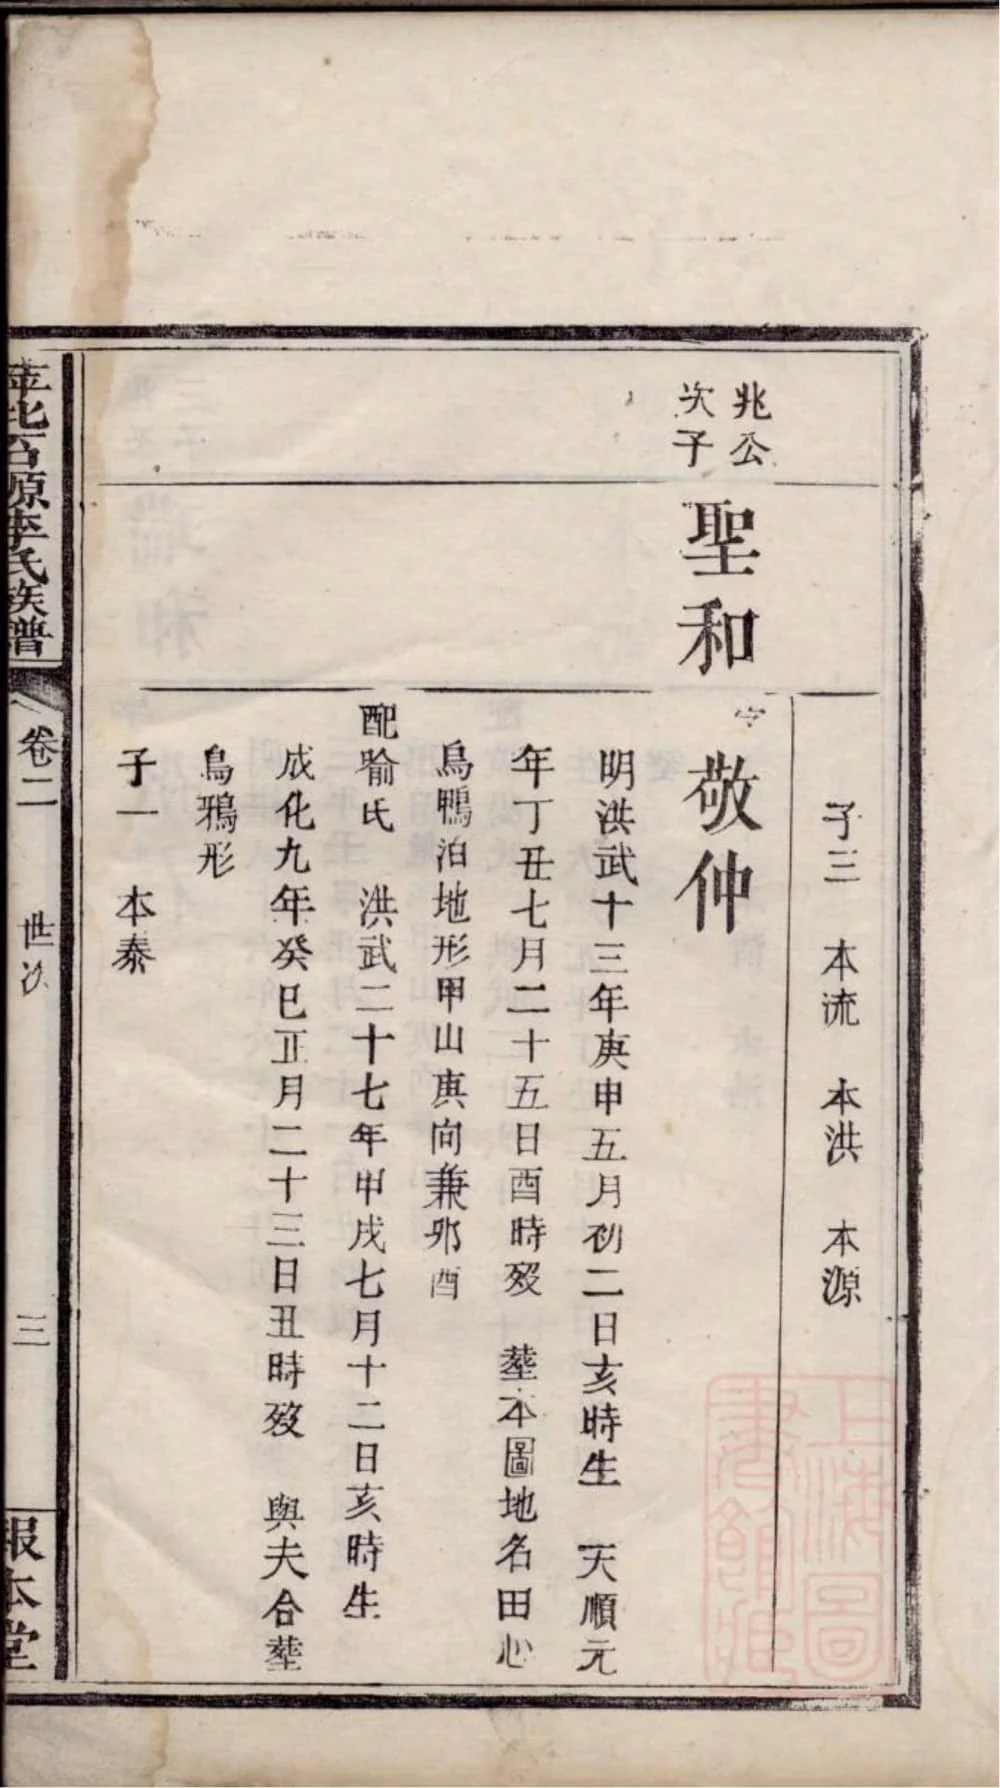 子三 本流 本洪 本源
兆公
次子
聖和
字 敬仲
明洪武十三年庚申五月初二日亥時生 天順元
年丁丑七月二十五日酉時歿 塟本圖地名田心
烏鴨泊地形甲山庚向兼卯酉
配喻氏 洪武二十七年甲戌七月十二日亥時生
成化九年癸巳正月二十三日丑時歿 與夫合塟
烏鴉形
子一 本泰
萍北石源李氏族譜
卷二 世次 三
報本堂
上海圖
書館藏